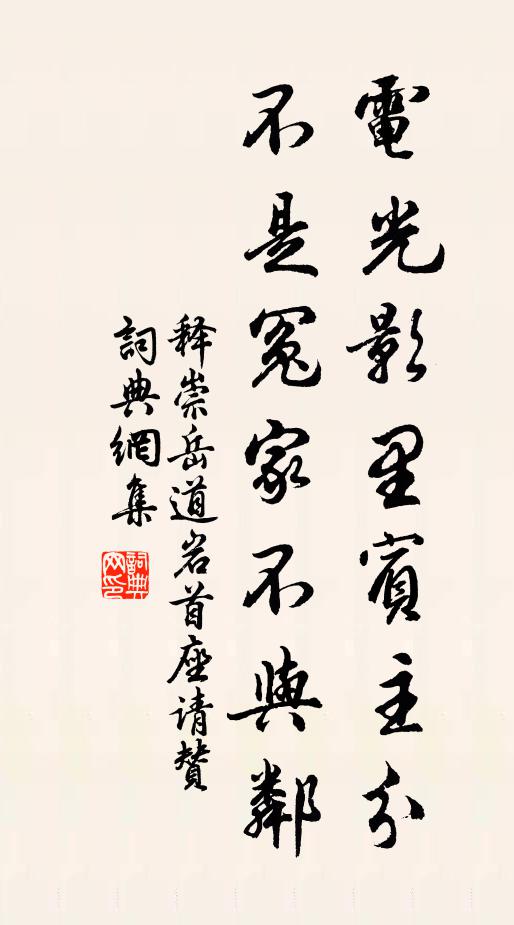 電光影里賓主分
不是冤家不與鄰
释崇岳道岩首座请赞
詞典網集
詞典
网印